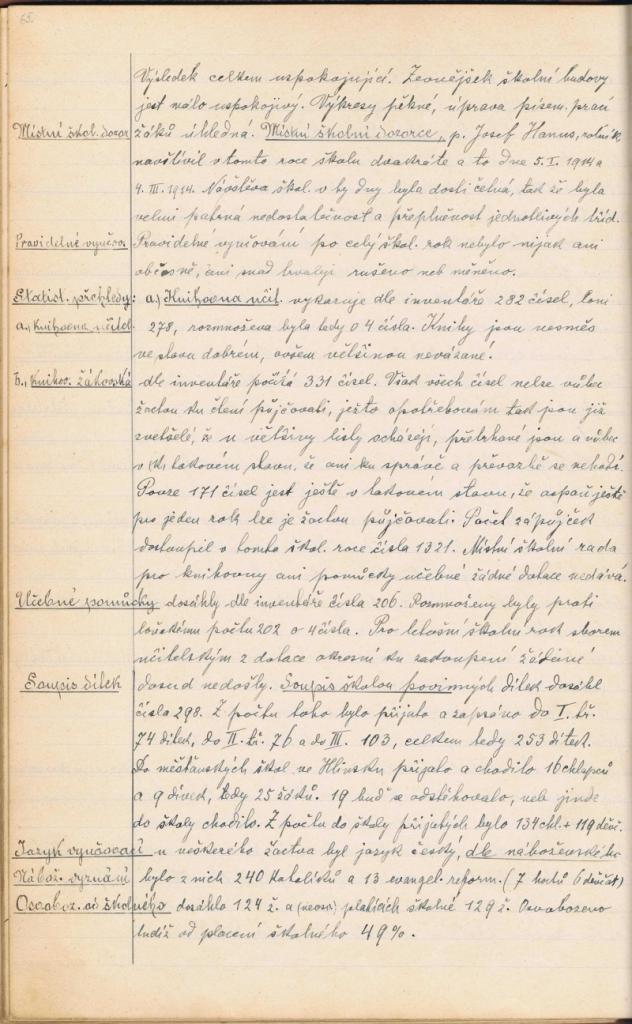 65.
Výsledek celkem uspokojující. Zevnějšek školní budovy
jest málo uspokojivý. Výkresy pěkné, úprava písem. prací
Místní škol. dozor žáků úhledná. Místní školní dozorce, p. Josef Hanus, rolník
navštívil v tomto roce školu dvakráte a to dne 5. I. 1914 a
4. III. 1914. Návštěva škol. v ty dny byla dosti četná, tak že byla
velmi patrná nedostatečnost a přeplněnost jednotlivých tříd.
Pravidelné vyučov. Pravidelné vyučování po celý škol. rok nebylo nijak ani
občasně, ani snad trvaleji rušeno neb měněno.
Statist. přehledy: a.) Knihovna učit. vykazuje dle inventáře 282 čísel, loni
a., Knihovna učitel. 278, rozmnožena byla tedy o 4 čísla. Knihy jsou vesměs
ve stavu dobrém, ovšem většinou nevázané.
b., Knihov. žákovská dle inventáře počítá 331 čísel. Však všech čísel nelze vůbec
žactvu ku čtení půjčovati, ježto opotřebováním tak jsou již
zvetšelé, že u většiny listy scházejí, přetrhané jsou a vůbec
v takovém stavu, že ani ku správě a převazbě se nehodí.
Pouze 171 čísel jest ještě v takovém stavu, že aspoň ještě
pro jeden rok lze je žactvu půjčovati. Počet zápůjček
dostoupil v tomto škol. roce čísla 1321. Místní školní rada
pro knihovny ani pomůcky učebné žádné dotace nedává.
Učebné pomůcky dosáhly dle inventáře čísla 206. Rozmnoženy byly proti
loňskému počtu 202 o 4 čísla. Pro letošní školní rok sborem
učitelským z dotace okresní ku zakoupení žádané
Soupis dítek dosud nedošly. Soupis školou povinných dítek dosáhl
čísla 298. Z počtu toho bylo přijato a zapsáno do I. tř.
74 dítek, do II. tř. 76 a do III. 103, celkem tedy 253 dítek.
Do měšťanských škol ve Hlinsku přijato a chodilo 16 chlapců
a 9 dívek, tedy 25 žáků. 19 buď se odstěhovalo, neb jinde
do školy chodilo. Z počtu do školy přijatých bylo 134 chl. + 119 děvč.
Jazyk vyučovací u veškerého žactva byl jazyk český, dle náboženského
Nábož. vyznání bylo z nich 240 katolíků a 13 evangel. reform. (7 hochů 6 děvčat)
Osvoboz. od školného dosáhlo 124 ž. a platících školné 129 ž. Osvobozeno
tudíž od placení školného 49%.